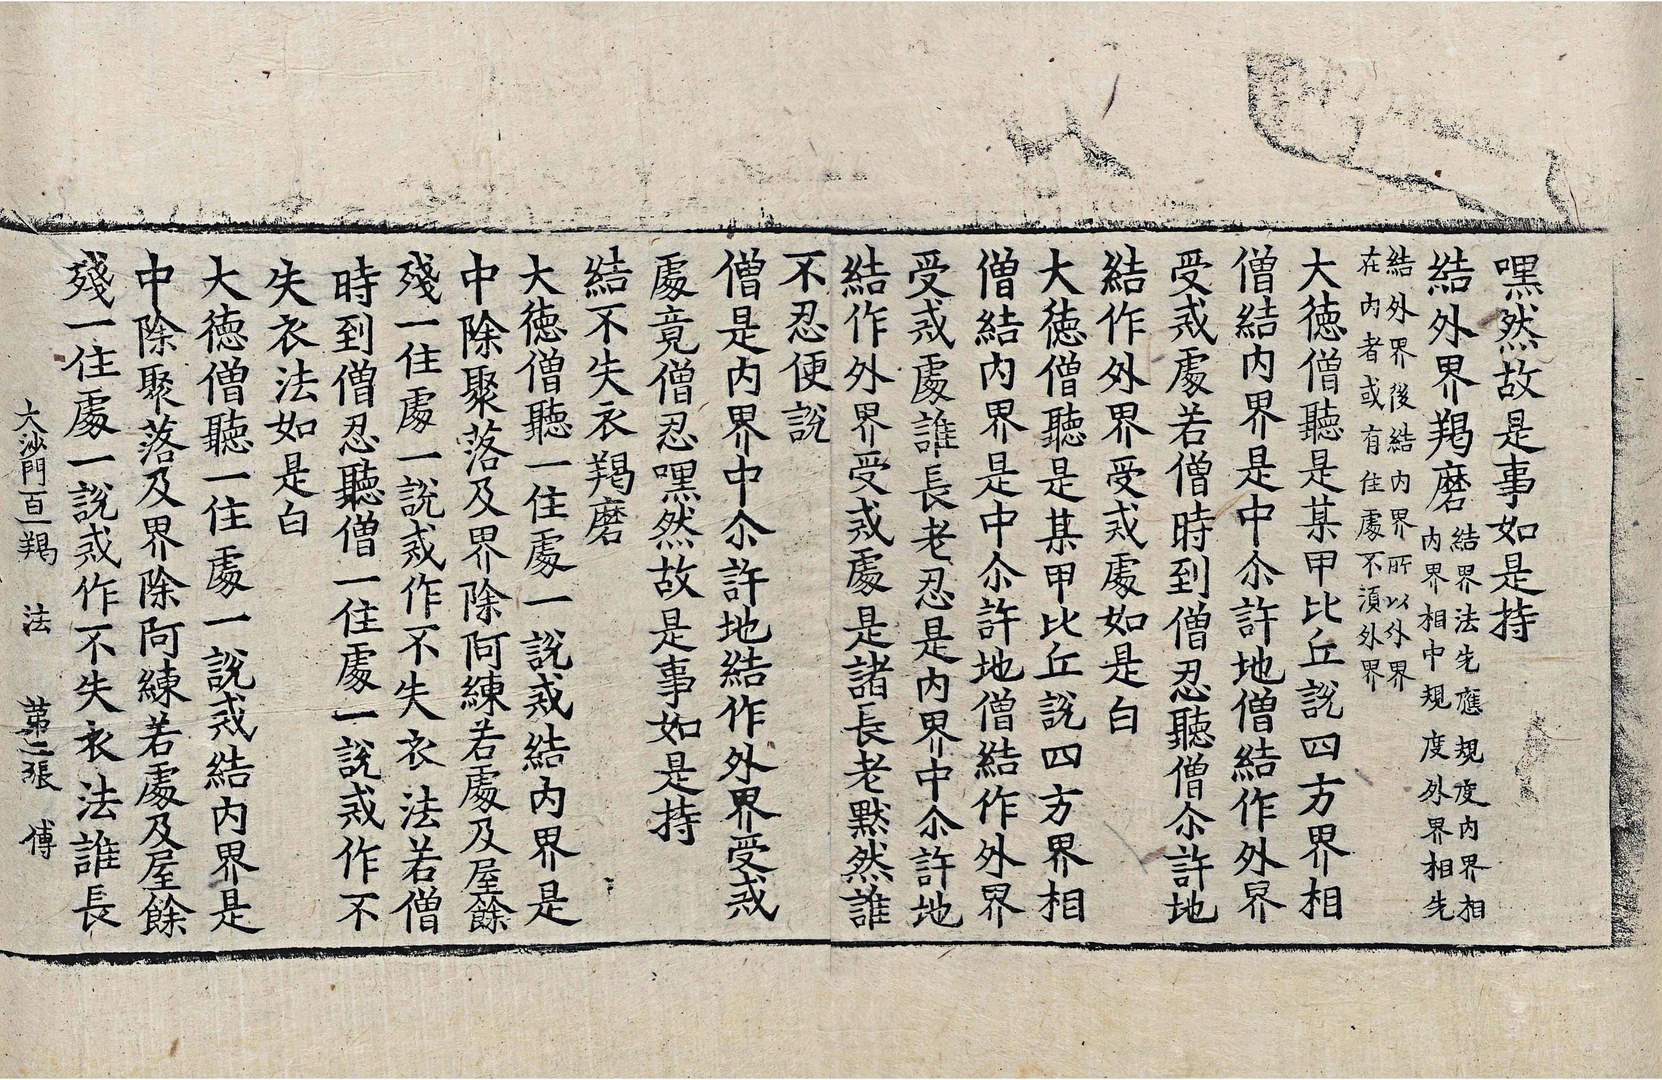 嘿然故是事如是持
結外界羯磨結界法先應規度內界相
內界相中規度外界相先
結外界後結內界所以外界
在內者或有住處不須外界
大徳僧聽是某甲比丘說四方界相
僧結內界是中尒許地僧結作外界
受戒處若僧時到僧忍聽僧尒許地
結作外界受戒處如是白
大徳僧聽是某甲比丘說四方界相
僧結內界是中尒許地僧結作外界
受戒處誰長老忍是內界中尒許地
結作外界受戒處是諸長老默然誰
不忍便說
僧是內界中尒許地結作外界受戒
處竟僧忍嘿然故是事如是持
結不失衣羯磨
大徳僧聽一住處一說戒結內界是
中除聚落及界除阿練若處及屋餘
殘一住處一說戒作不失衣法若僧
時到僧忍聽僧一住處一說戒作不
失衣法如是白
大徳僧聽一住處一說戒結內界是
中除聚落及界除阿練若處及屋餘
殘一住處一說戒作不失衣法誰長
大沙門百一羯　法　第二張　傅